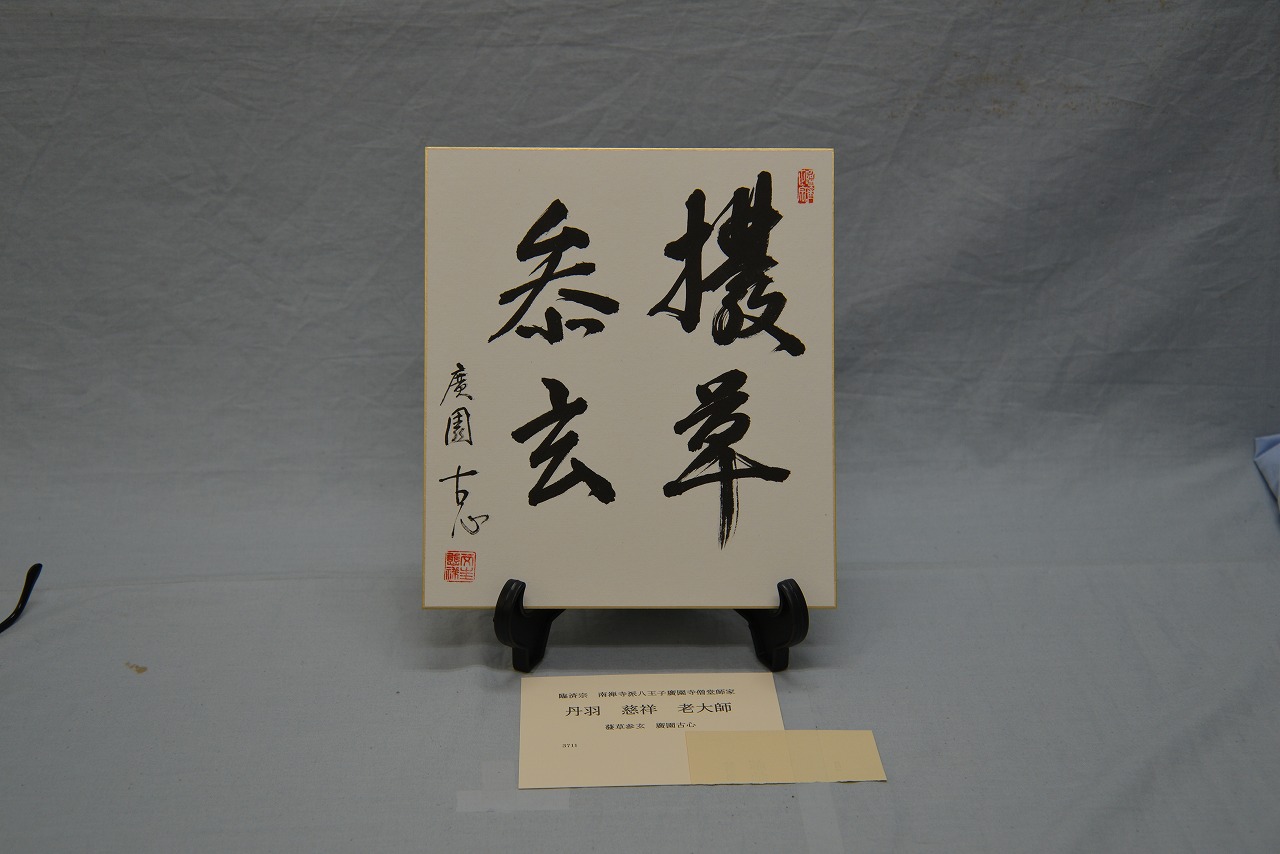 撥草
参玄
廣園 古心
臨済宗 南禅寺派八王子廣園寺僧堂師家
丹羽 慈祥 老大師
草参玄 廣園古心
3711